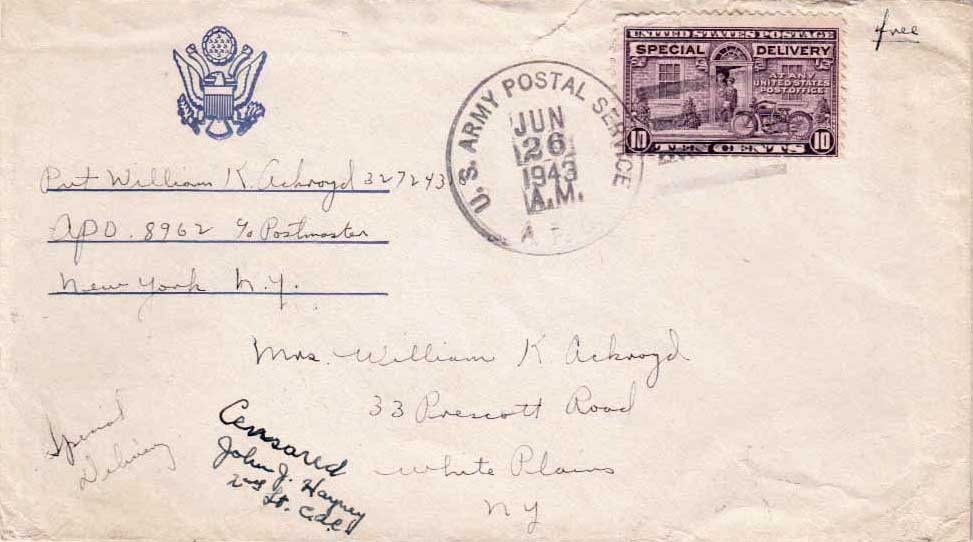 free
UNITED STATES POSTAGE
SPECIAL DELIVERY
AT ANY
UNITED STATES
POST OFFICE
10 TEN CENTS 10
U. S. ARMY POSTAL SERVICE
JUN
26
1943
A.M.
Pvt William K. Ackroyd 327243
APO. 8962 c/o Postmaster
New York N.Y.
Mrs. William K Ackroyd
33 Prescott Road
White Plains
NY
Special
Delivery
Censored
John J.
2nd Lt. C.A.C.